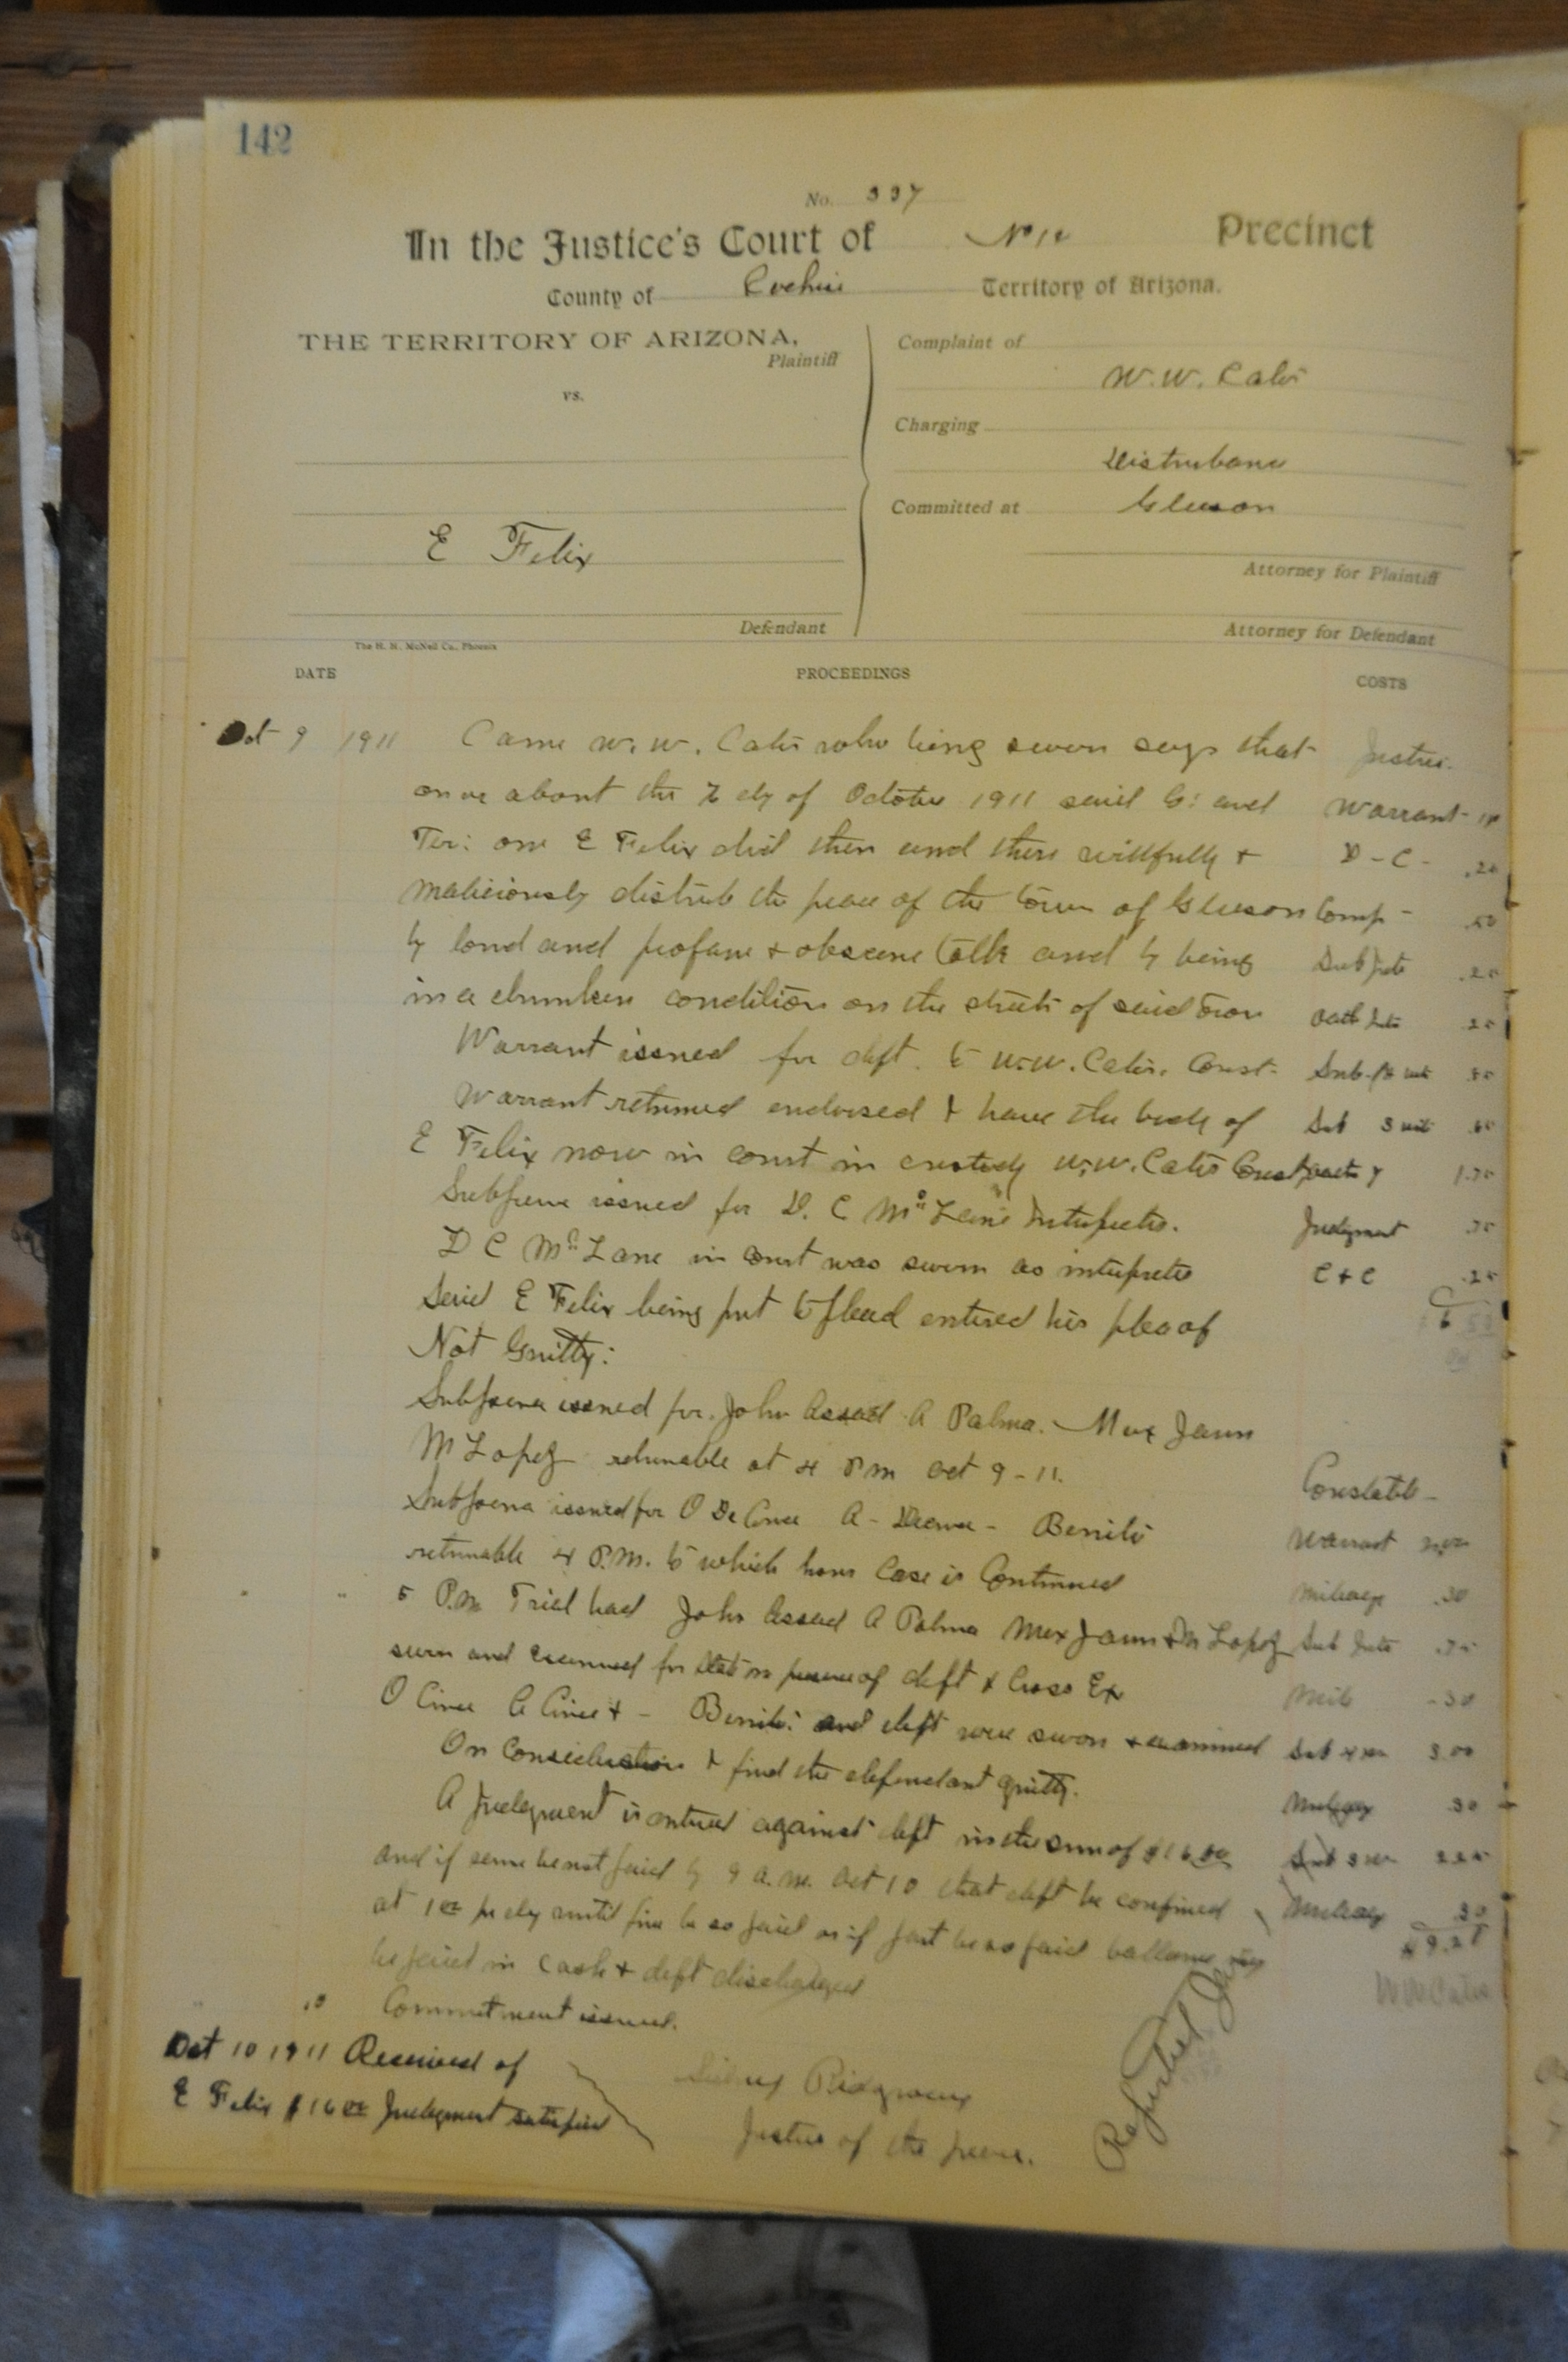 142
No. 337
In the Justice's Court of No 12 Precinct
County of Cochise Territory of Arizona.
THE TERRITORY OF ARIZONA,
Plaintiff
vs.
E Felix
Defendant
Complaint of
W. W. Cates
Charging
Distrubance
Committed at Gleeson
Attorney for Plaintiff
Attorney for Defendant
The H. H. McNeil Co., Phoenix
DATE PROCEEDINGS COSTS
Oct 9 1911 Came W. W. Cates who being sworn says that
on or about the day of October 1911 said Co: and
Ter: one E Felix did then and there willfully +
maliciously distrub the peace of the town of Gleeson
by loud and profane + obscene talk and by being
in a drunken condition on the streets of said town
Warrant issued for deft. to W. W. Cates. Const.
Warrant returned endorsed I have the body of
E Felix now in court in custody W. W. Cates Const
Subpena issued for D. C McLane Interpeter.
D C McLane in court was sworn as interpreter
Said E Felix being put to plead entered his plea of
Not Guilty:
Subpoena issued for. John Assad A Palma. Max Jaun
M Lopez returnable at 4 P m Oct 9 - 11.
Subpoena issued for O A - Benito
returnable 4 P.M. to which hour Case is Continued
5 P.M Trial had John Assad A Palma Max Jaun + M Lopez
sworn and examined for in of deft + Cross Ex
O - Benito: and deft were sworn + examined
On Consideration I find the defendant guilty.
A Judgment is entered against deft in the sum of $16.00
and if same be not paid by 9 a.m. Oct 10 that deft be confined
at 1.00 per day until fine be so paid or if part be so paid ballance may
be paid in Cash + deft discharged
10 Commitment issued.
Oct 10 1911 Received of
E Felix $16.00 Judgment satisfied
Sidney Ridgway
Justice of the peace.
Reported
Justice.
Warrant
D - C -
Comp - .50
Sub
Oath
Sub
Sub 3 wit
Oath 7 1.75
Judgment .75
C + C .25
Constable
Warrant
Mileage .30
Sub .75
Mile - 30
Sub 3.00
Mileage .30
Sub
Mileage 30
9.25
W W Cates